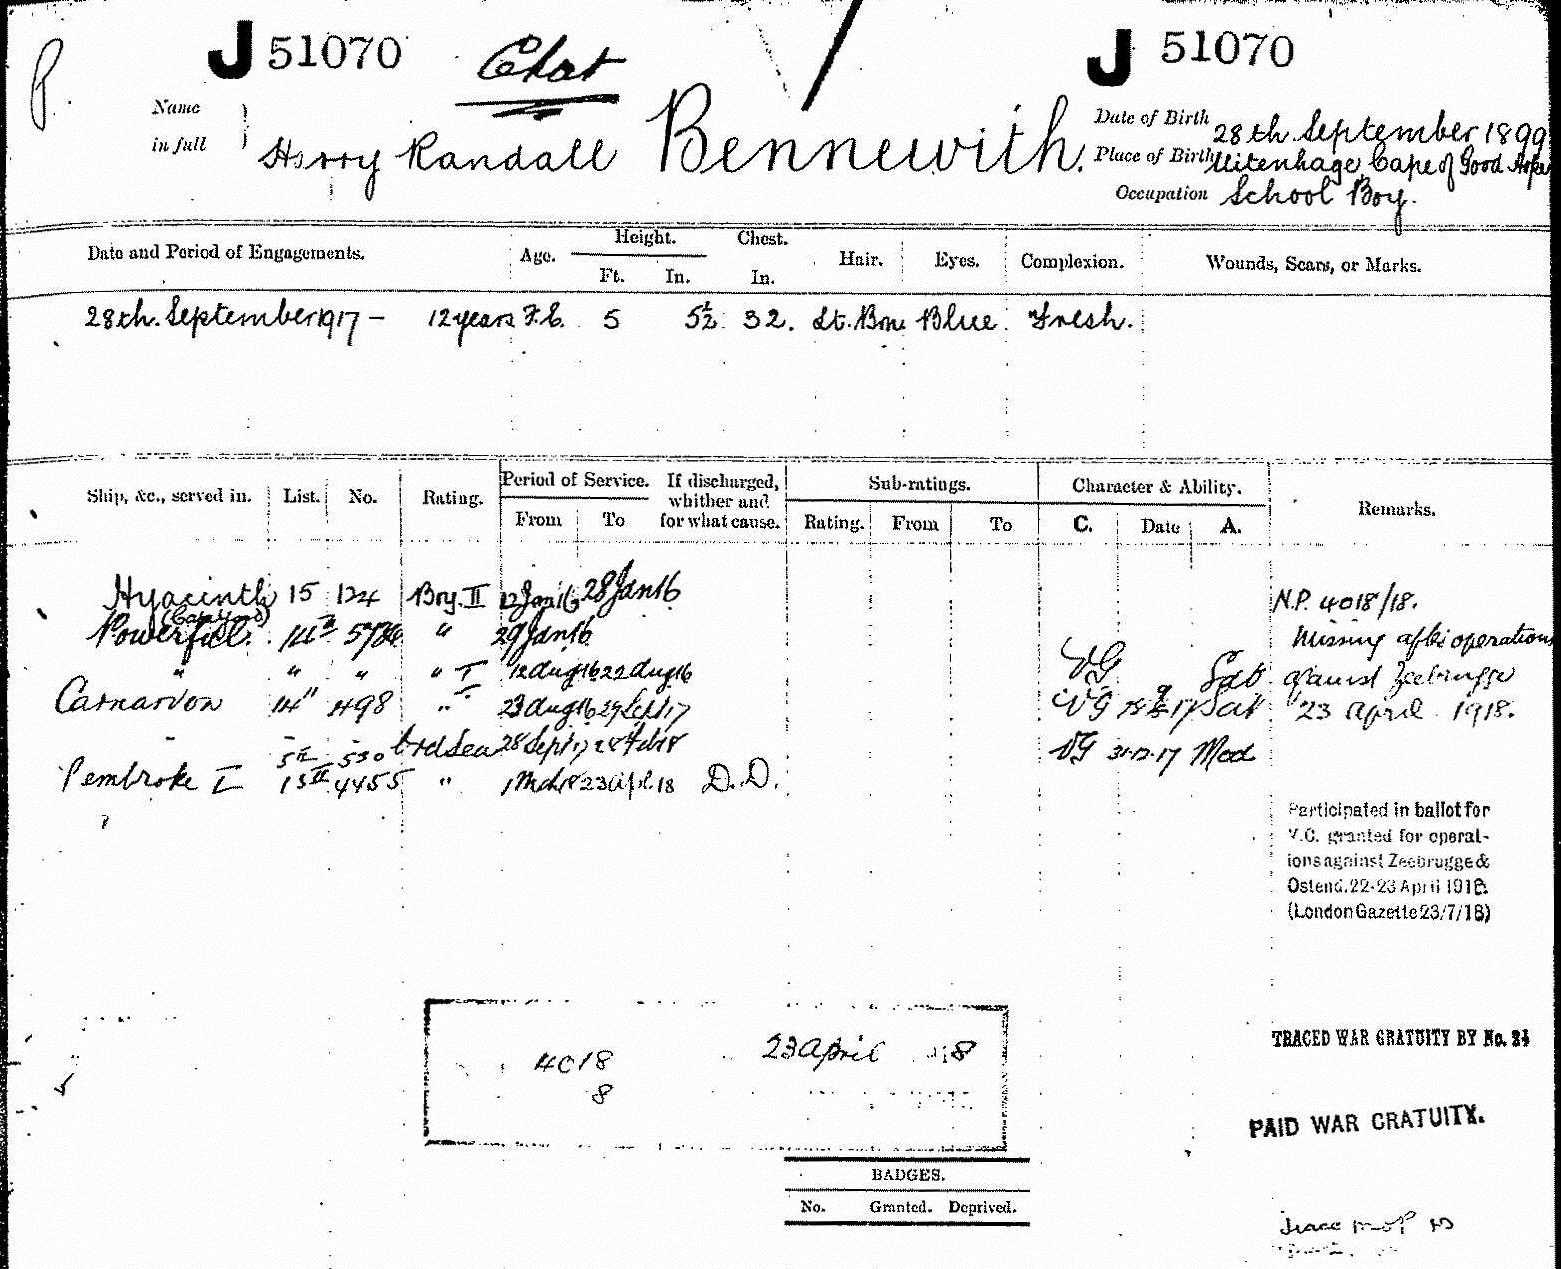 J 51070 Chat J 51070
Name in full Harry Randall Bennewith.
Date of Birth 28th September 1899
Place of Birth Uitenhage, Cape of Good Hope
Occupation School Boy.
Date and Period of Engagements. Age. Height. Ft. In. Chest. In. Hair. Eyes. Complexion. Wounds, Scars, or Marks.
28th. September 1917 - 12 years 5 5½ 32. Lt. Brn Blue Fresh.
Ship, &c., served in. List. No. Rating. Period of Service. From To If discharged, whither and for what cause. Sub-ratings. Rating. From To Character & Ability. C. Date A. Remarks.
Hyacinth 15 124 Boy II 12 Jan 16 28 Jan 16 N.P. 4018/18.
Powerful " 29 Jan 16 Missing after operations
" " " " I 12 Aug 16 22 Aug 16 VG Sat against Zeebrugge
Carnarvon 14" 498 " 23 Aug 16 27 Sept 17 VG Sat 23 April 1918.
530 Ord Sea 28 Sept 17 28 Feb 18 VG 31.12.17 Mod
Pembroke I 15 4455 " 1 Mch 18 23 Apl. 18 D.D.
Participated in ballot for
V.C. granted for operat-
ions against Zeebrugge &
Ostend. 22-23 April 1918.
(London Gazette 23/7/18)
4018
8
23 April 18
TRACED WAR GRATUITY BY No. 24
PAID WAR GRATUITY.
BADGES.
No. Granted. Deprived.